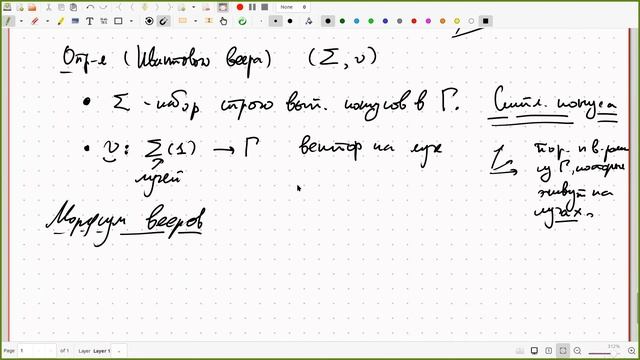 Опр-е (Квантового веера) (Σ, v)
• Σ - набор строго вып. конусов в Γ.
• v : Σ(1) → Γ вектор на луче
лучей
Морфизм вееров
Симпл. конуса
пор. н в-рами
из Γ, которые
живут на
лучах.
None 0
Page 1 of 1 Layer Layer 1
312%